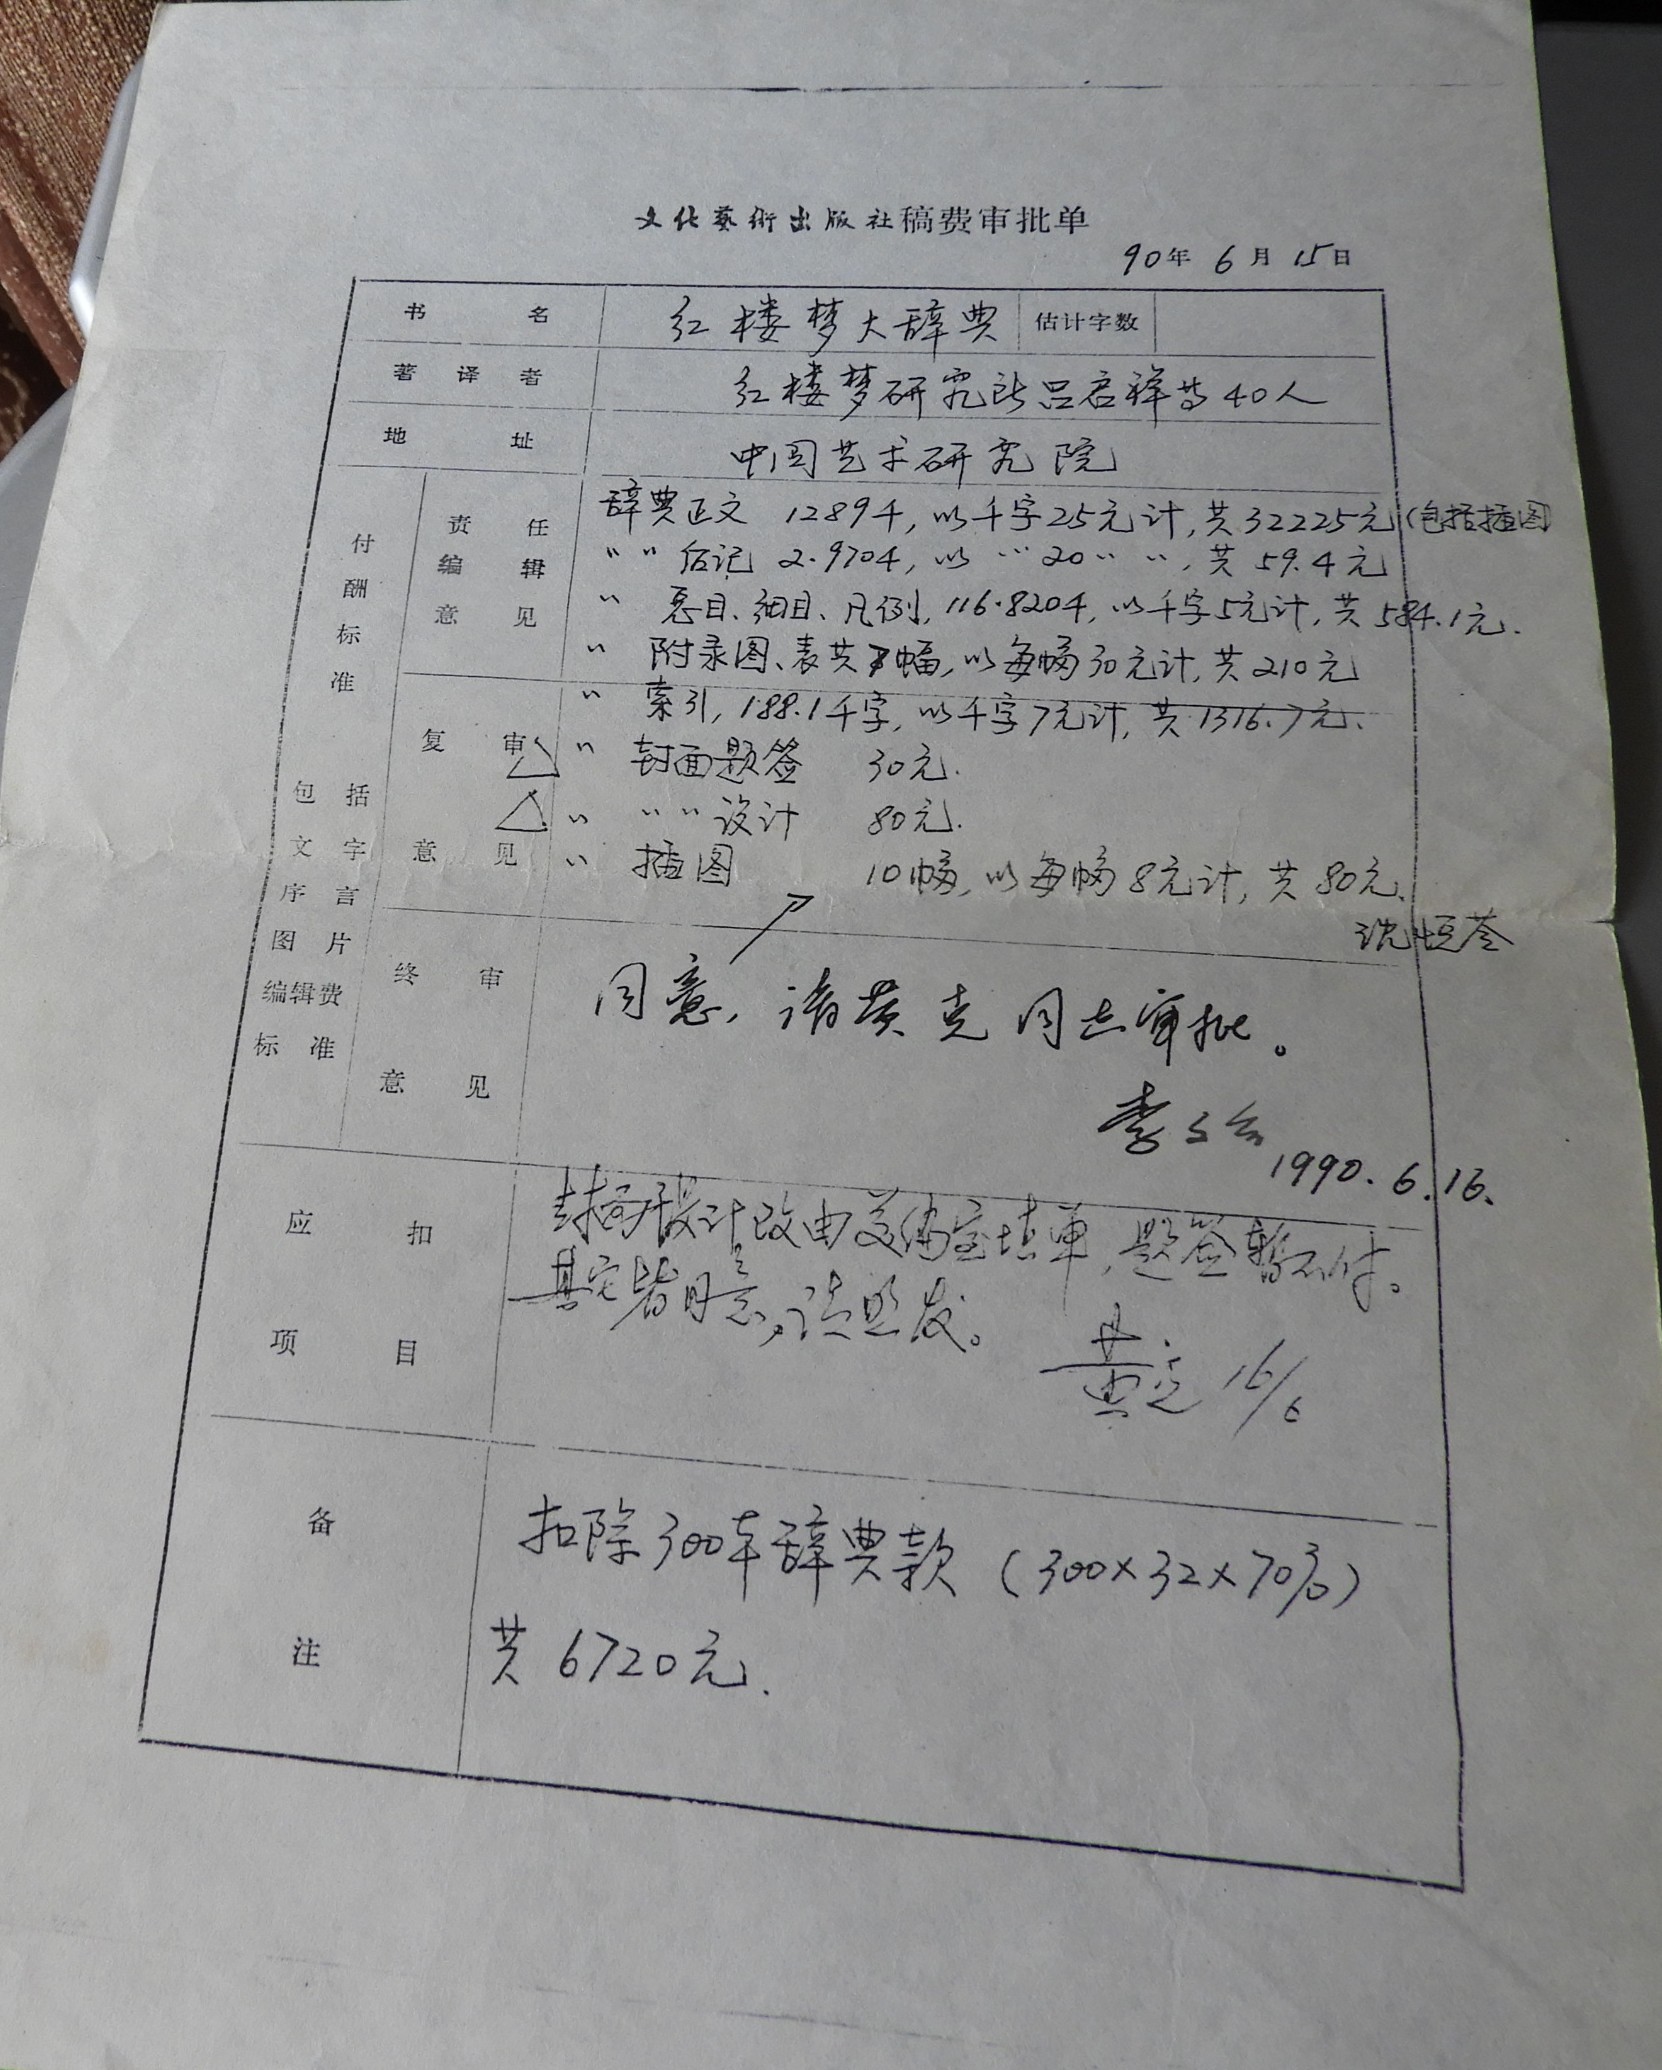 文化藝術出版社稿费审批单
90年 6月 15日
书名 红楼梦大辞典 估计字数
著译者 红楼梦研究所吕启祥等40人
地址 中国艺术研究院
付酬标准 包括文字序言图片编辑费标准
责任编辑意见
辞典正文 1289千, 以千字25元计, 共32225元(包括插图
〃 〃 后记 2.970千, 以 〃 20 〃 〃, 共 59.4元
〃 总目、细目、凡例, 116.820千, 以千字5元计, 共584.1元.
〃 附录图、表共7幅, 以每幅30元计, 共210元
〃 索引, 188.1千字, 以千字7元计, 共1316.7元.
复审意见
△ 〃 封面题签 30元.
△ 〃 〃 〃 设计 80元.
〃 插图 10幅, 以每幅8元计, 共80元.
沈恒苍
终审意见
同意, 请黄克同志审批。
1990.6.16.
应扣项目
封面设计改由美编室填单, 题签暂不付。
其它皆同意, 请照发。
黄克 16/6
备注
扣除300本辞典款 (300×32×70%)
共 6720元.